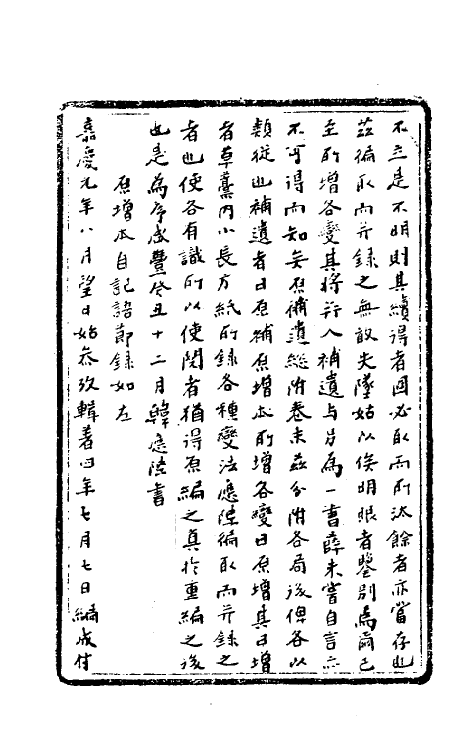 不立是不明則其續得者固必取而所汰餘者亦當存也
茲徧取而并錄之無敢失墜姑以俟明眼者鑒別焉爾已
至所增各變其將并入補遺与另為一書薛未嘗自言亦
不可得而知矣原補遺総附卷末茲分附各局後俾各以
類從也補遺者曰原補原增本所增各變曰原增其曰增
者草藁內小長方紙所錄各種變法應陞徧取而并錄之
者也使各有識所以使閱者猶得原編之真於重編之後
也是為序咸豐癸丑十二月韓應陞書
原增本自記語節錄如左
嘉慶元年八月望日始叅攷輯著四年七月七日編成付